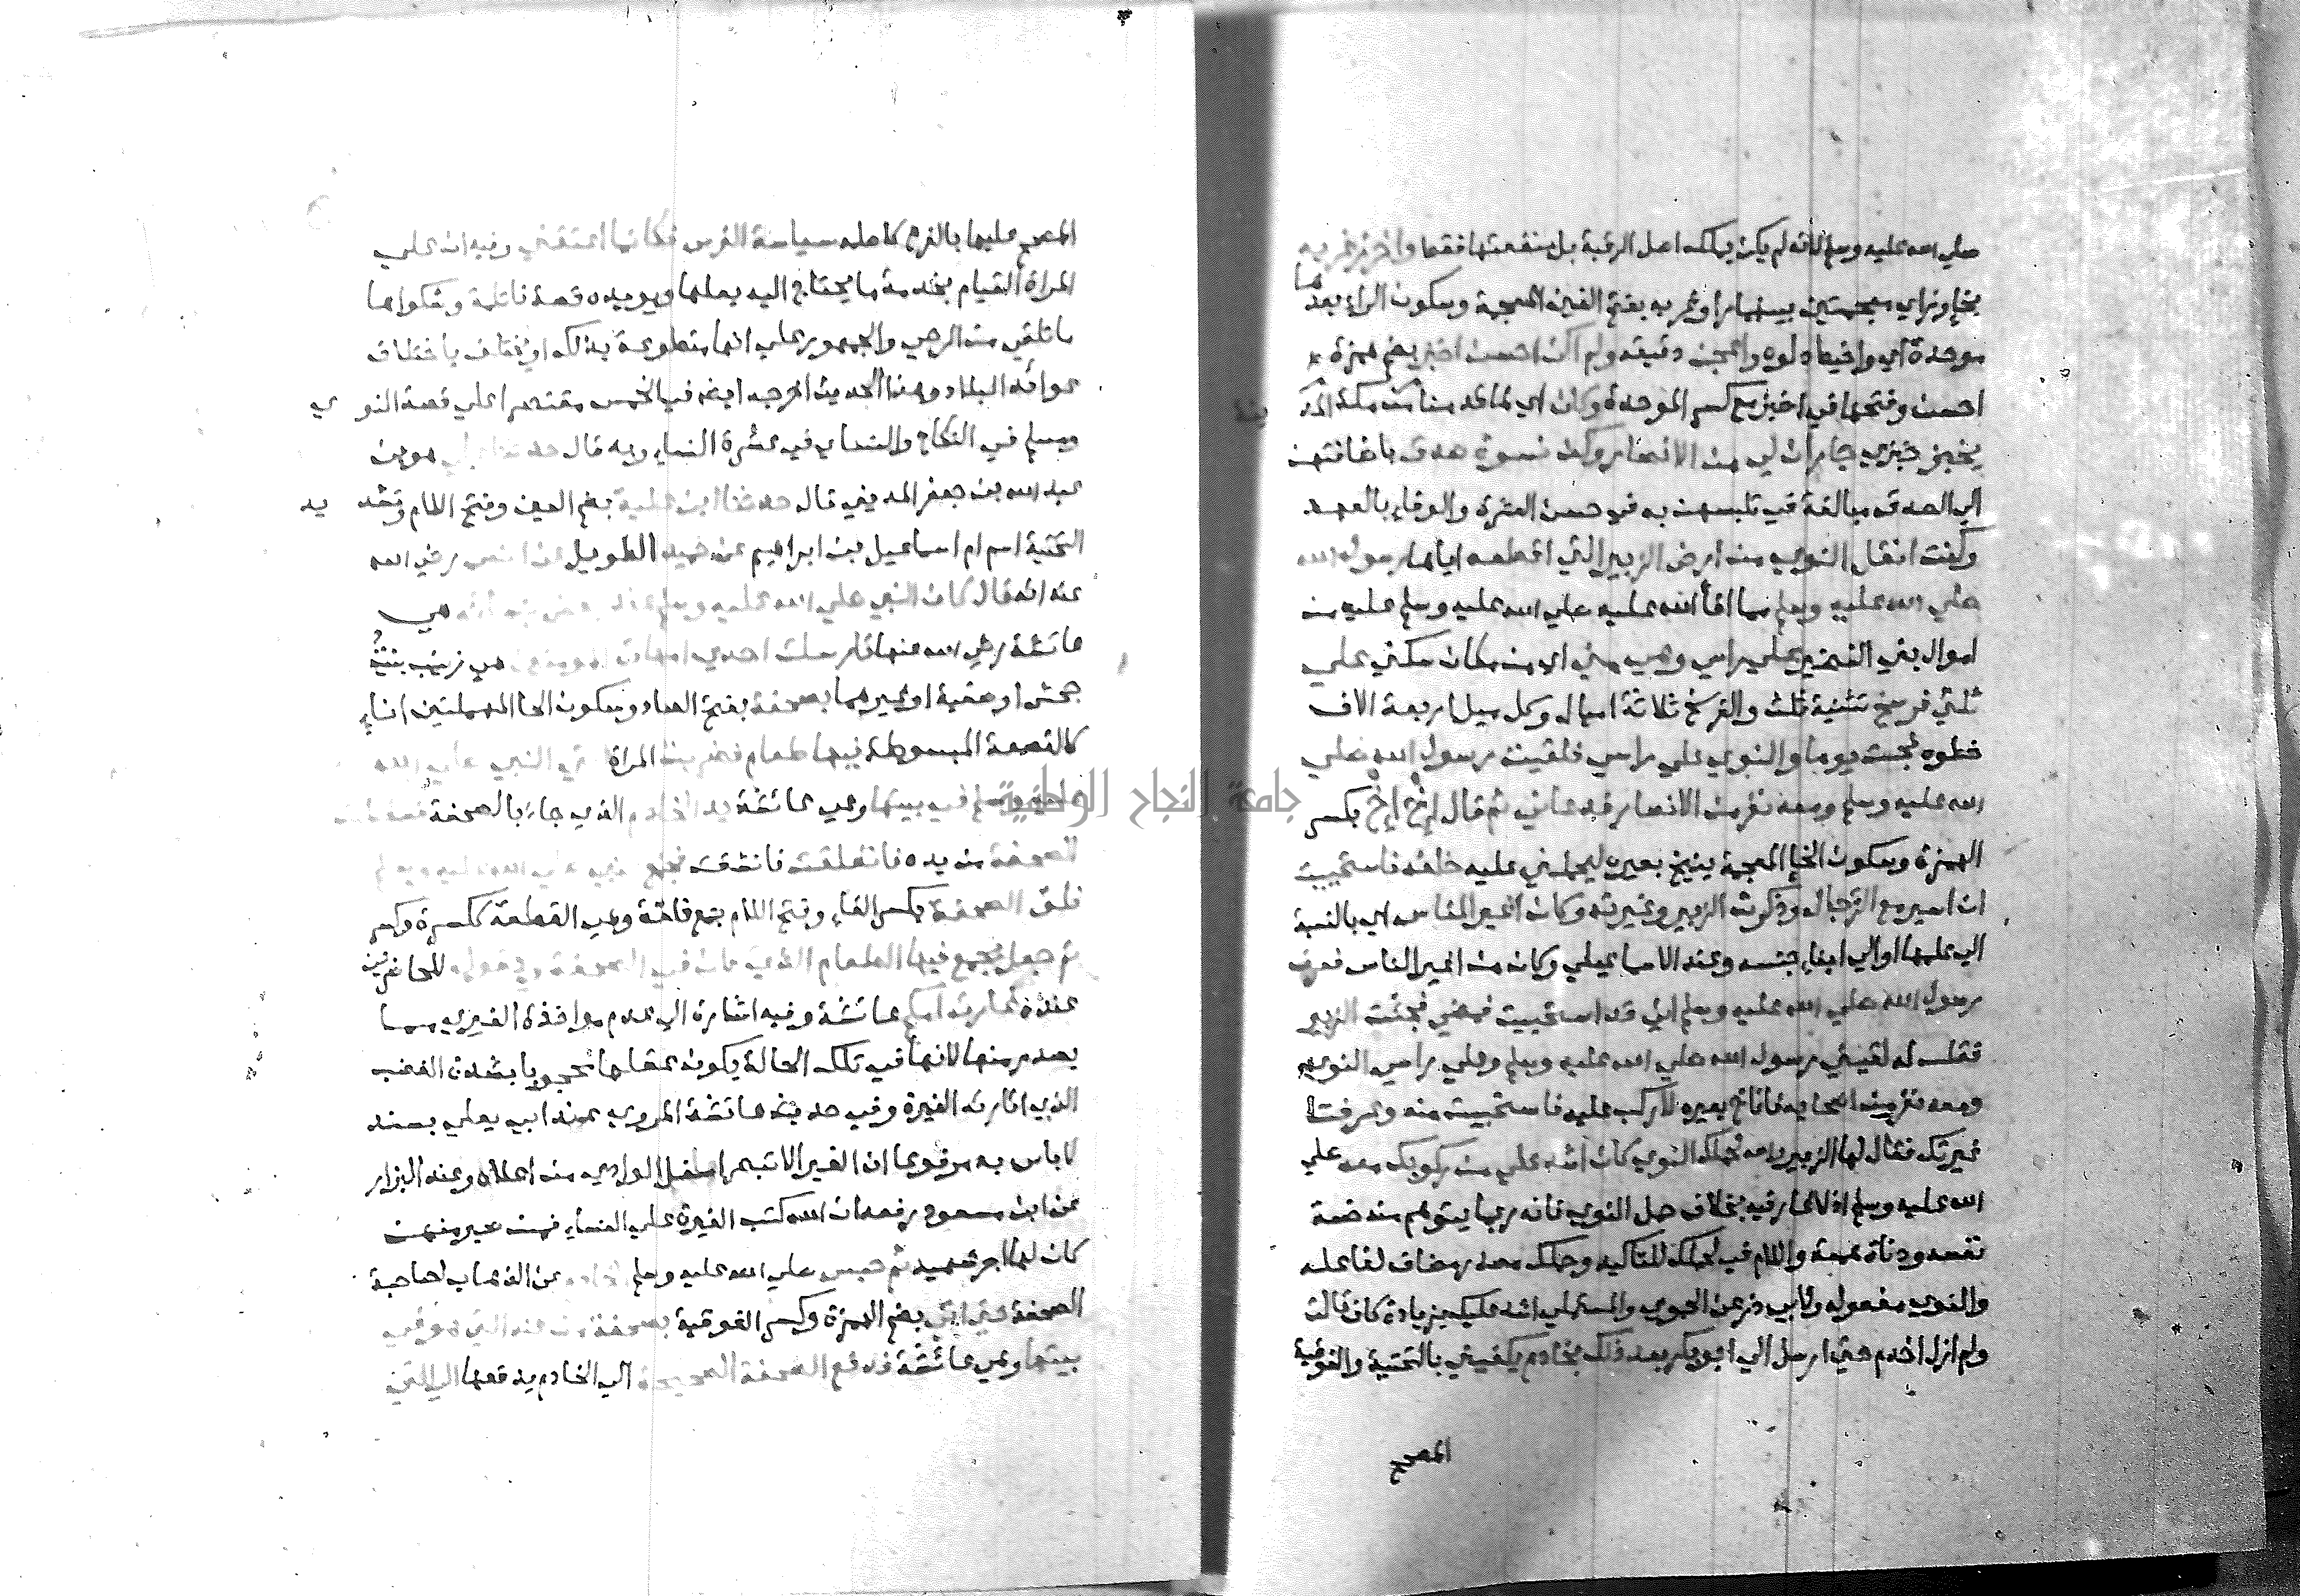 صلي الله عليه وسلم لانه لم يكن يملك اصل الرقبة بل منفعتها فقط واخرز غربه
بخاء وزاي معجمتين بينهما را وغربه بفتح الغين المعجمة وسكون الراء بعدها
موحدة اي واخيط دلوه واعجن دقيقه ولم اكن احسن اخبز بضم همزة
احسن وفتحها في اخبز مع كسر الموحدة وكان اي لما قدمنا من مكة المد ينة
يخبز خبزي جارات لي من الانصار وكن نسوة صدق باضافتهن
الي الصدق مبالغة في تلبسهن به في حسن العشرة والوفاء بالعهد
وكنت انقل النوي من ارض الزبير التي اقطعه اياها رسول الله
صلي الله عليه وسلم مما افاء الله عليه صلي الله عليه وسلم عليه من
اموال بني النضير علي راسي وهي مني اي من مكان سكني علي
ثلثي فرسخ تثنية ثلث والفرسخ ثلاثة اميال وكل ميل اربعة الاف
خطوه فجئت يوما والنوي علي راسي فلقيت رسول الله صلي
الله عليه وسلم ومعه نفر من الانصار فدعاني ثم قال إخ إخ بكسر
الهمزة وسكون الخاء المعجمة ينيخ بعيره ليحملني عليه خلفه فاستحييت
ان اسير مع الرجال وذكرت الزبير وغيرته وكان اغير الناس اي بالنسبة
الي علمها او الي ابناء جنسه وعند الاسماعيلي وكان من اغير الناس فعرف
رسول الله صلي الله عليه وسلم اني قد استحييت فمضي فجئت الزبير
فقلت له لقيني رسول الله صلي الله عليه وسلم وعلي راسي النوي
ومعه نفر من اصحابه فاناخ بعيره لاركب عليه فاستحييت منه وعرفت
غيرتك فقال لها الزبير والله لحملك النوي كان اشد علي من ركوبك معه صلي
الله عليه وسلم اذ لا عار فيه بخلاف حمل النوي فانه ربما يتوهم منه خسة
نفسه ودناة همته واللام في لحملك للتاكيد وحملك مصدر مضاف لفاعله
والنوي مفعوله ولابي ذر عن الحموي والمستملي اشد عليك بزيادة كاف قالت
ولم ازل اخدم حتي ارسل الي ابو بكر بعد ذلك بخادم يكفيني بالتحتية والفوقية
المصحح
المصحح عليها بالفرع كاصله سياسة الفرس فكانما اعتقني وفيه ان علي
المراة القيام بخدمة ما يحتاج اليه بعلها ويويده قصة فاطمة وشكواها
ما تلقي من الرحي والجمهور علي انها متطوعة بذلك او يختلف باختلاف
عوائد البلاد وهذا الحديث اخرجه ايضا في الخمس مقتصرا علي قصة النو ي
ومسلم في النكاح والنساي في عشرة النساء وبه قال حدثنا علي هو بن
عبد الله بن جعفر المديني قال حدثنا ابن علية بضم العين وفتح اللام وتشد يد
التحتية اسم ام اسماعيل بن ابراهيم عن حميد الطويل عن انس رضي الله
عنه انه قال كان النبي صلي الله عليه وسلم عند بعض نسائه هي
عائشة رضي الله عنها فارسلت احدي امهات المومنين هي زينب بنت
جحش او صفية او غيرهما بصحفة بفتح الصاد وسكون الحا المهملتين اناء
كالقصعة المبسوطة فيها طعام فضربت المراة التي النبي صلي الله
عليه وسلم في بيتها وهي عائشة يد الخادم الذي جاء بالصحفة فسقطت
الصحفة من يده فانفلقت فانشقت فجمع النبي صلي الله عليه وسلم
فلق الصحفة بكسر الفاء وفتح اللام جمع فلقة وهي القطعة ككسرة وكسر
ثم جعل يجمع فيها الطعام الذي كان في الصحفة ويقول للحاضرين
عنده غارت امكم عائشة وفيه اشارة الي عدم مواخذة الغيري بما
يصدر منها لانها في تلك الحالة يكون عقلها محجوبا بشدة الغضب
الذي اثارته الغيرة وفي حديث عائشة المروي عند ابي يعلي بسند
لا باس به مرفوعا ان الغيرا لا تبصر اسفل الوادي من اعلاه وعند البزار
عن ابن مسعود رفعه ان الله كتب الغيرة علي النساء فمن صبر منهن
كان لها اجر شهيد ثم حبس صلي الله عليه وسلم الخادم عن الذهاب لصاحبة
الصحفة حتي اتي بضم الهمزة وكسر الفوقية بصحفة من عند التي هو في
بيتها وهي عائشة فدفع الصحفة الصحيحة الي الخادم يدفعها الي التي
جامعة النجاح الوطنية